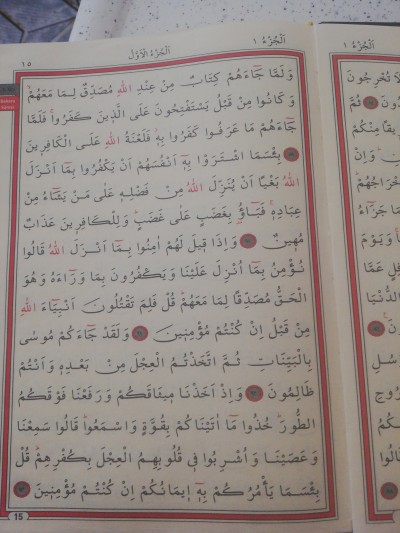 اَلْجُزْءُ ١
اَلْجُزْءُ الْاَوَّلُ
١٥
وَلَمَّا جَٓاءَهُمْ كِتَابٌ مِنْ عِنْدِ اللّٰهِ مُصَدِّقٌ لِمَا مَعَهُمْۙ
وَكَانُوا مِنْ قَبْلُ يَسْتَفْتِحُونَ عَلَى الَّذٖينَ كَفَرُواۚ فَلَمَّا
جَٓاءَهُمْ مَا عَرَفُوا كَفَرُوا بِهٖۘ فَلَعْنَةُ اللّٰهِ عَلَى الْكَافِرٖينَ
بِئْسَمَا اشْتَرَوْا بِهٖٓ اَنْفُسَهُمْ اَنْ يَكْفُرُوا بِمَٓا اَنْزَلَ
اللّٰهُ بَغْيًا اَنْ يُنَزِّلَ اللّٰهُ مِنْ فَضْلِهٖ عَلٰى مَنْ يَشَٓاءُ مِنْ
عِبَادِهٖۚ فَبَٓاؤُ۫ بِغَضَبٍ عَلٰى غَضَبٍۜ وَلِلْكَافِرٖينَ عَذَابٌ
مُهٖينٌ وَاِذَا قٖيلَ لَهُمْ اٰمِنُوا بِمَٓا اَنْزَلَ اللّٰهُ قَالُوا
نُؤْمِنُ بِمَٓا اُنْزِلَ عَلَيْنَا وَيَكْفُرُونَ بِمَا وَرَٓاءَهُ وَهُوَ
الْحَقُّ مُصَدِّقًا لِمَا مَعَهُمْۜ قُلْ فَلِمَ تَقْتُلُونَ اَنْبِيَٓاءَ اللّٰهِ
مِنْ قَبْلُ اِنْ كُنْتُمْ مُؤْمِنٖينَ وَلَقَدْ جَٓاءَكُمْ مُوسٰى
بِالْبَيِّنَاتِ ثُمَّ اتَّخَذْتُمُ الْعِجْلَ مِنْ بَعْدِهٖ وَاَنْتُمْ
ظَالِمُونَ وَاِذْ اَخَذْنَا مٖيثَاقَكُمْ وَرَفَعْنَا فَوْقَكُمُ
الطُّورَۜ خُذُوا مَٓا اٰتَيْنَاكُمْ بِقُوَّةٍ وَاسْمَعُواۜ قَالُوا سَمِعْنَا
وَعَصَيْنَا وَاُشْرِبُوا فٖي قُلُوبِهِمُ الْعِجْلَ بِكُفْرِهِمْۜ قُلْ
بِئْسَمَا يَأْمُرُكُمْ بِهٖٓ اٖيمَانُكُمْ اِنْ كُنْتُمْ مُؤْمِنٖينَ
15